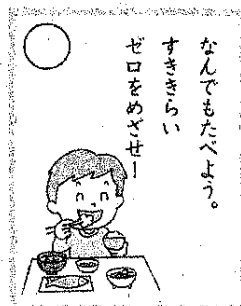 なんでもたべよう。
すききらい
ゼロをめざせー